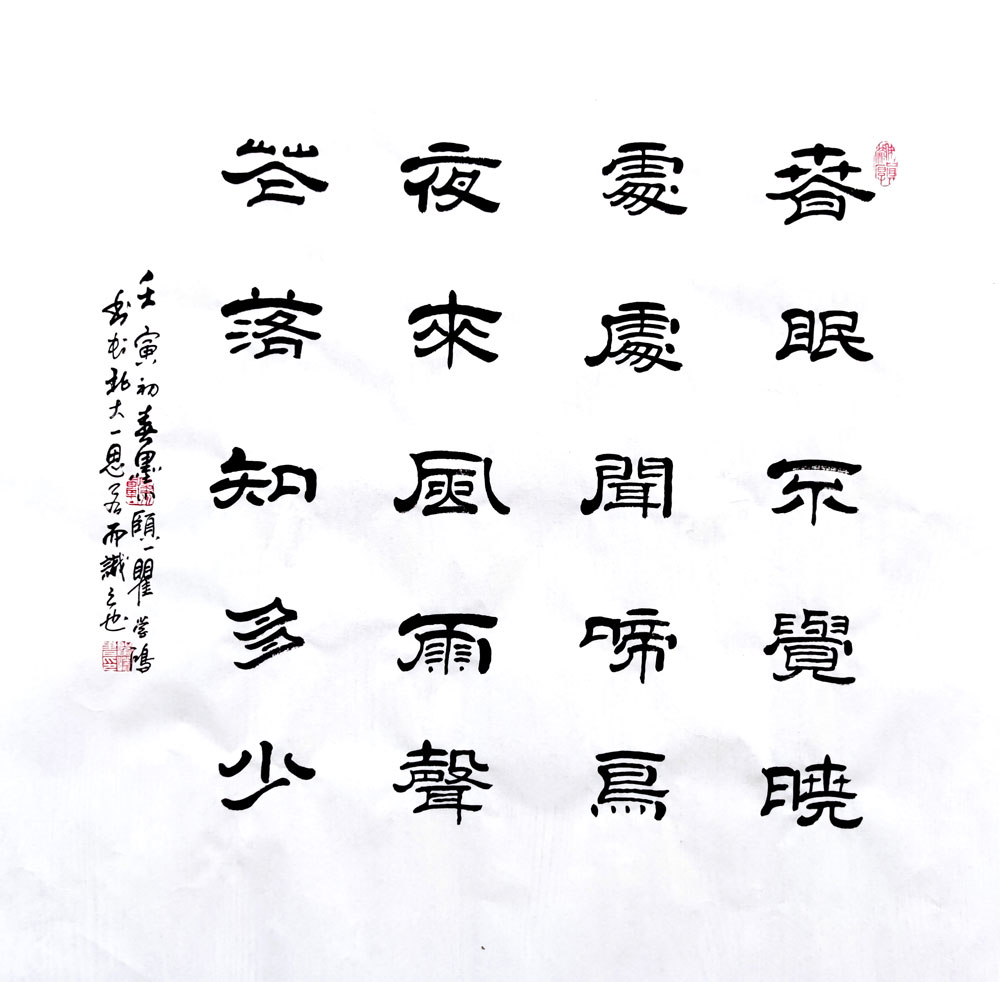 春眠不覺曉
處處聞啼鳥
夜來風雨聲
花落知多少
壬寅初春墨頤一瞿学鴻
書於北大一思若而識之也